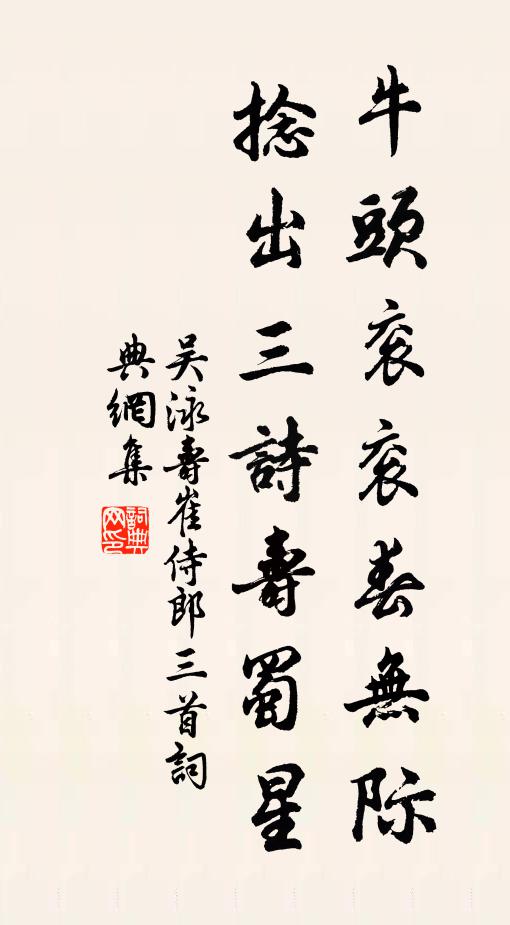 牛頭衮衮春無際
捻出三詩壽蜀星
吴泳壽崔侍郎三首詞
典網集
詞典
网印